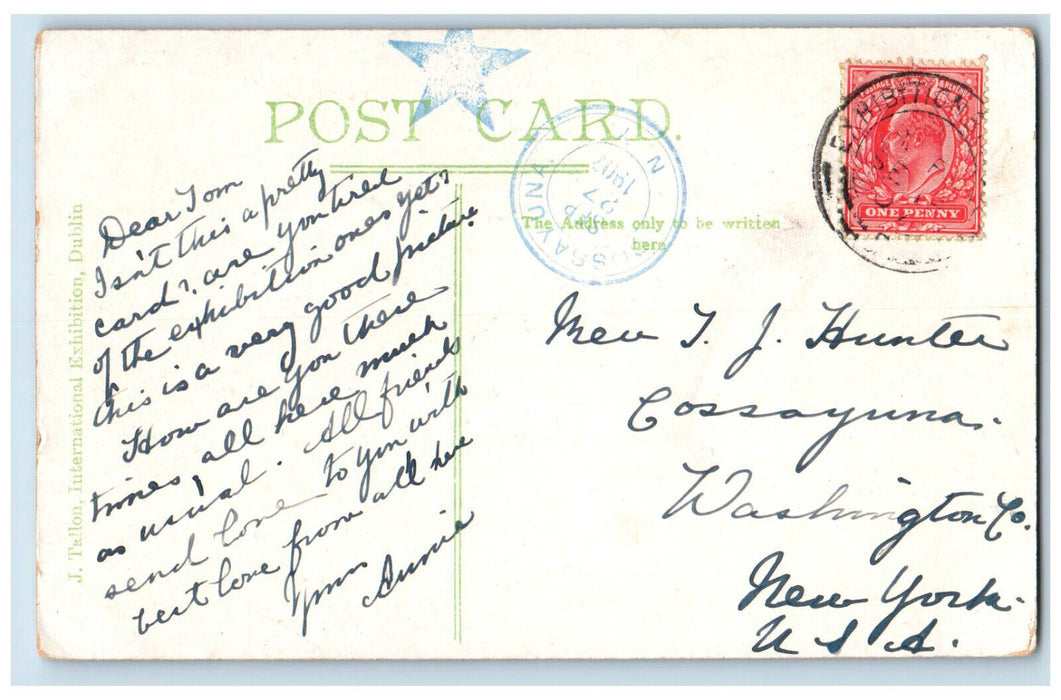 POST CARD.
J. Tallon, International Exhibition, Dublin
The Address only to be written
here
COSSAYUNA
SEP
27
1907
N
EXHIBITION
POSTAGE REVENUE
ONE PENNY
Dear Tom
Isn't this a pretty
card? are you tired
of the exhibition ones yet?
this is a very good picture.
How are you these
times, all here much
as usual. All friends
send love to you with
best love from all here
Yours
Annie
T. J. Hunter
Cossayuna.
Washington Co.
New York.
U S A.